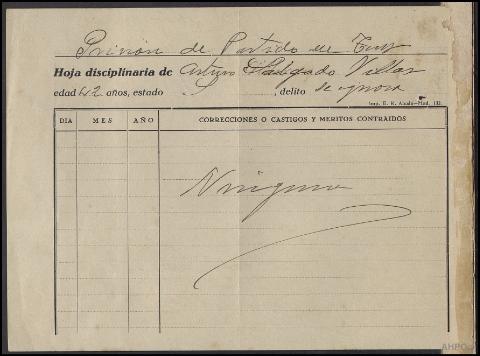 Prisión de Partido de Tuy
Hoja disciplinaria de Arturo Salgado Villar
edad 42 años, estado , delito se ignora
Imp. E. R. Alcalá—Mad. 
DIA MES AÑO CORRECCIONES O CASTIGOS Y MERITOS CONTRAIDOS
Ninguna
AHPO